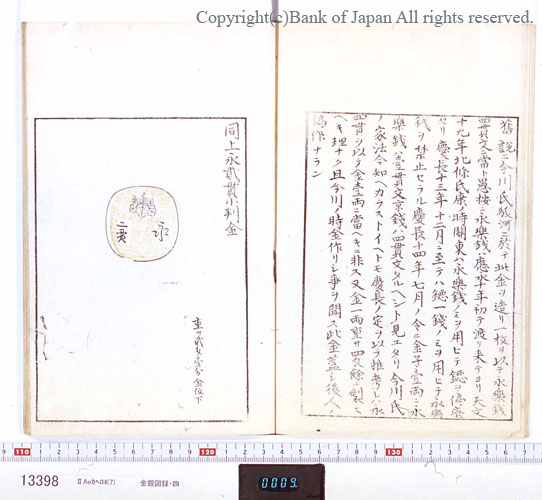 Copyright(c)Bank of Japan All rights reserved.
舊説ニ今川氏駿河ニ於テ此金ヲ造リ一枚ヲ以テ永樂錢
四貫文ニ當ト愚按ニ永樂錢ハ應永年初テ渡リ来テヨリ天文
十九年北條氏康ノ時關東ハ永樂錢ノミヲ用ヒテ鐚ヲ停廢
セリ慶長十三年十二月ニ至テハ鐚一錢ノミヲ用ヒテ永樂
錢ヲ禁止セラル慶長十四年七月ノ令ニ金子壹両ニ永
樂錢ハ壹貫文京錢ハ四貫文タルヘシト見エタリ今川氏
ノ家法今知ヘカラストイヘトモ慶長ノ定ヲ以テ推考レハ永
四貫ヲ以テ金壹両ニ當ヘキニ非ス又金一両重サ四匁餘ニ製ス
ヘキ理ナク且今川ノ時金作リシ事ヲ聞ス此金蓋シ後人ノ
偽作ナラン
同上永貳貫小判金
永
貳
金位下
110
120
130
13398
II AeB^04(7)
金銀図録・四
0009